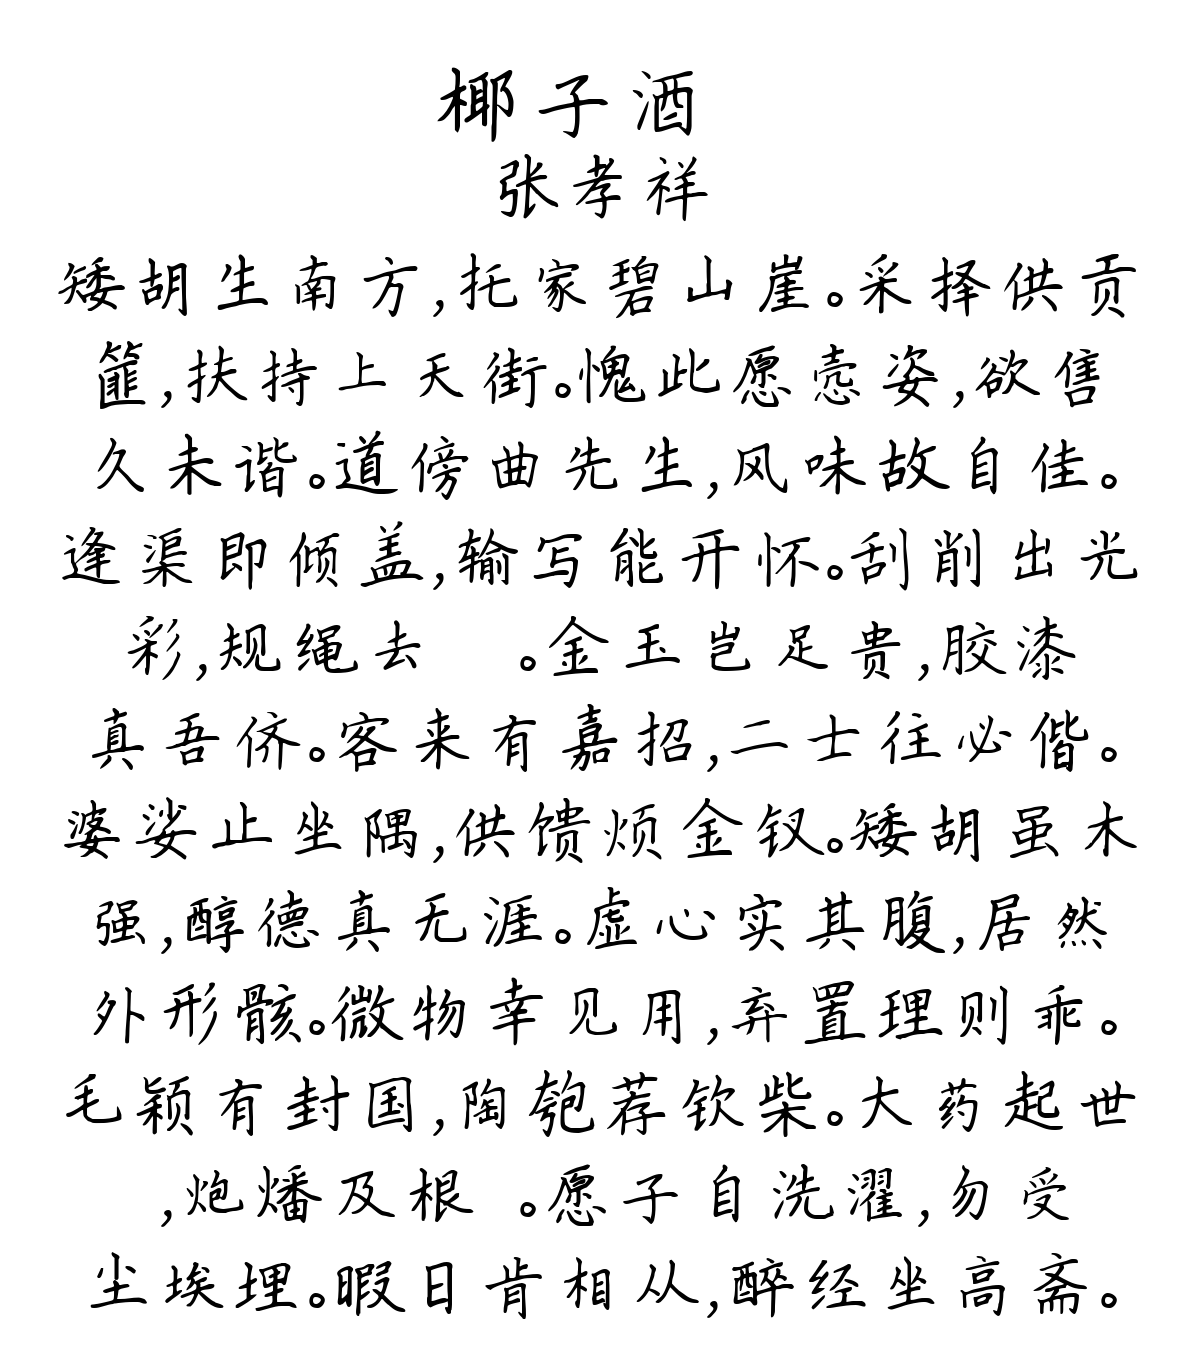 椰子酒
张孝祥
矮胡生南方,托家碧山崖。采择供贡
篚,扶持上天街。愧此愿悫姿,欲售
久未谐。道傍曲先生,风味故自佳。
逢渠即倾盖,输写能开怀。刮削出光
彩,规绳去 。金玉岂足贵,胶漆
真吾侪。客来有嘉招,二士往必偕。
婆娑止坐隅,供馈烦金钗。矮胡虽木
强,醇德真无涯。虚心实其腹,居然
外形骸。微物幸见用,弃置理则乖。
毛颖有封国,陶匏荐钦柴。大药起世
,炮燔及根 。愿子自洗濯,勿受
尘埃埋。暇日肯相从,醉经坐高斋。